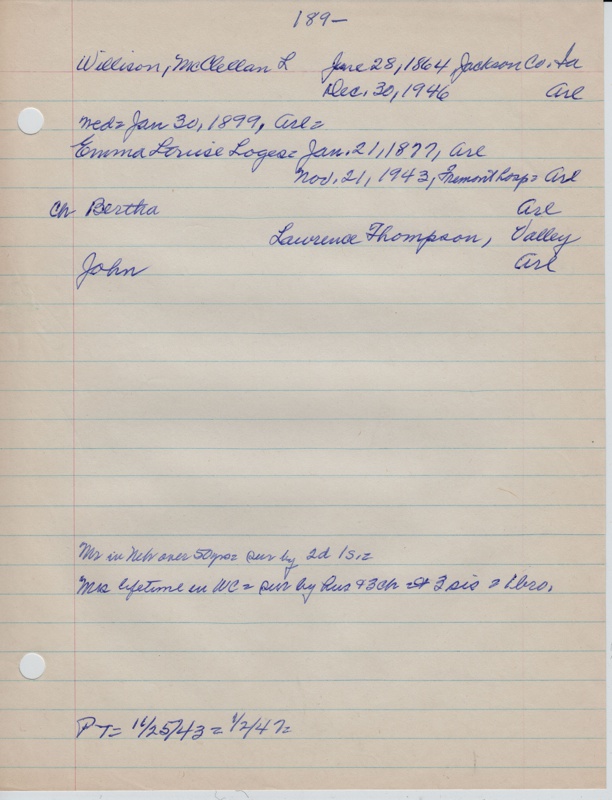 189-
Willison, McClellan L June 28, 1864 Jackson Co. Ia
Dec. 30, 1946 Arl
med= Jan 30, 1899, Arl=
Emma Louise Loges= Jan. 21, 1877, Arl
Nov. 21, 1943, Fremont Hosp= Arl
Ch Bertha Arl
Lawrence Thompson, Valley
John Arl
Mr in Neb over 50yrs= sur by 2d 1s.=
Mrs lifetime in WC= sur by hus & 3ch = 3 sis = 1bro.
PT= 11/25/43 = 1/2/47=